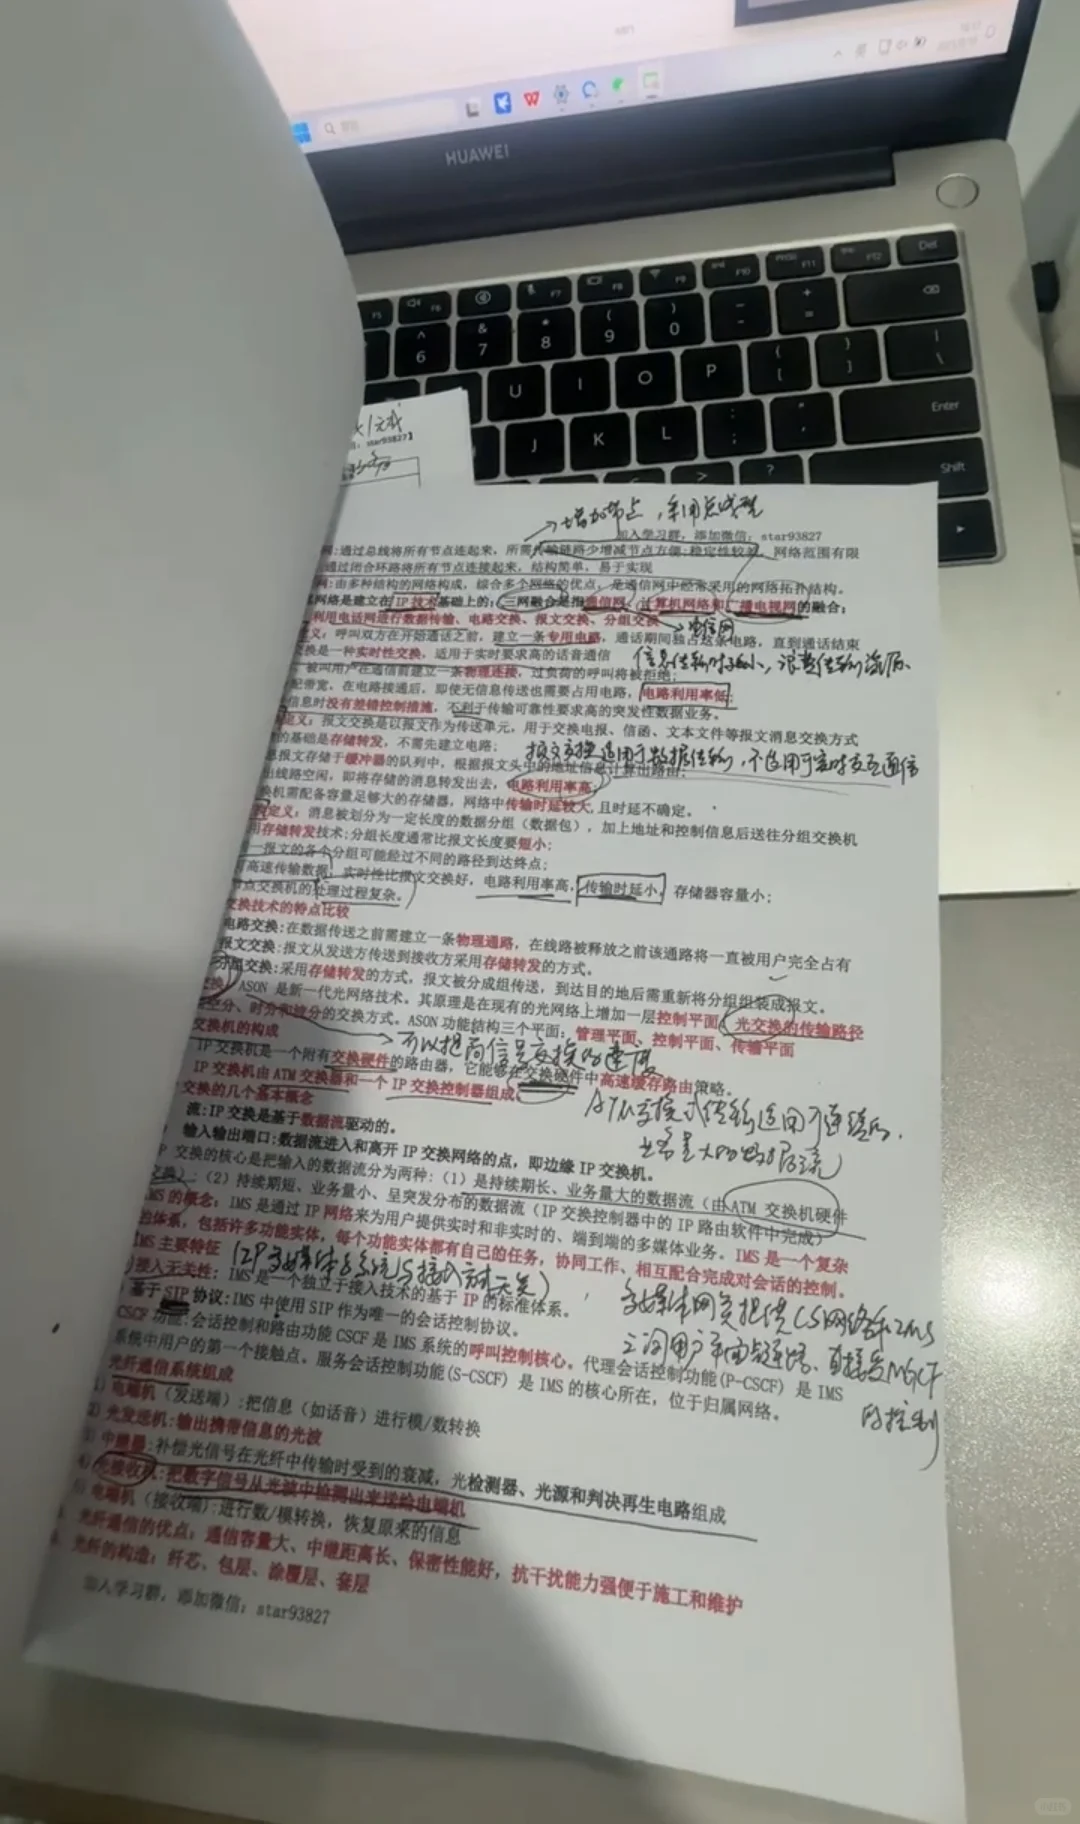 HUAWEI
Del
F5 F6 F7 F8 F9 F10 F11 F12
^ 6 & 7 * 8 ( 9 ) 0 - + =
U I O P { [ } ] | \
J K L : ; " ' Enter
> ? Shift
star93827】
增加节点，采用总线型
加入学习群，添加微信：star93827
网：通过总线将所有节点连起来，所需传输链路少增减节点方便;稳定性较差，网络范围有限
通过闭合环路将所有节点连接起来，结构简单，易于实现
网：由多种结构的网络构成，综合多个网络的优点，是通信网中经常采用的网络拓扑结构。
网络是建立在IP技术基础上的；三网融合是指通信网、计算机网络和广播电视网的融合；
利用电话网进行数据传输、电路交换、报文交换、分组交换
电信网
义：呼叫双方在开始通话之前，建立一条专用电路，通话期间独占这条电路，直到通话结束
换是一种实时性交换，适用于实时要求高的话音通信
信息传输时延小，浪费传输资源
被叫用户在通信前建立一条物理连接，过负荷的呼叫将被拒绝；
配带宽，在电路接通后，即使无信息传送也需要占用电路，电路利用率低；
信息时没有差错控制措施，不利于传输可靠性要求高的突发性数据业务。
定义：报文交换是以报文作为传送单元，用于交换电报、信函、文本文件等报文消息交换方式
的基础是存储转发，不需先建立电路；
报文交换适用于数据传输，不适用于实时交互通信
息报文存储于缓冲器的队列中，根据报文头中的地址信息计算出路由；
出线路空闲，即将存储的消息转发出去，电路利用率高；
换机需配备容量足够大的存储器，网络中传输时延较大，且时延不确定。
定义：消息被划分为一定长度的数据分组（数据包），加上地址和控制信息后送往分组交换机
用存储转发技术：分组长度通常比报文长度要短小；
一报文的各个分组可能经过不同的路径到达终点；
高速传输数据，实时性比报文交换好，电路利用率高，传输时延小，存储器容量小；
节点交换机的处理过程复杂。
交换技术的特点比较
电路交换：在数据传送之前需建立一条物理通路，在线路被释放之前该通路将一直被用户完全占有
报文交换：报文从发送方传送到接收方采用存储转发的方式。
分组交换：采用存储转发的方式，报文被分成组传送，到达目的地后需重新将分组组装成报文。
交换，ASON 是新一代光网络技术，其原理是在现有的光网络上增加一层控制平面，光交换的传输路径
空分、时分和波分的交换方式。ASON 功能结构三个平面：管理平面、控制平面、传输平面
交换机的构成
可以提高信号交换的速度
IP 交换机是一个附有交换硬件的路由器，它能够在交换硬件中高速缓存路由策略。
IP 交换机由 ATM 交换器和一个 IP 交换控制器组成。
ATM交换式传输适用于连续的，
业务量大的数据流）
交换的几个基本概念
流：IP 交换是基于数据流驱动的。
输入输出端口：数据流进入和离开 IP 交换网络的点，即边缘 IP 交换机。
交换的核心是把输入的数据流分为两种：（1）是持续期长、业务量大的数据流（由 ATM 交换机硬件
交换）；（2）持续期短、业务量小、呈突发分布的数据流（IP 交换控制器中的 IP 路由软件中完成）
IMS 的概念：IMS 是通过 IP 网络来为用户提供实时和非实时的、端到端的多媒体业务。IMS 是一个复杂
的体系，包括许多功能实体，每个功能实体都有自己的任务，协同工作、相互配合完成对会话的控制。
IMS 主要特征
（IP多媒体子系统与接入方式无关）
接入无关性：IMS 是一个独立于接入技术的基于 IP 的标准体系。
基于 SIP 协议：IMS 中使用 SIP 作为唯一的会话控制协议。
多媒体网关提供CS网络和IMS
之间用户平面点链路、直接受MGCF
的控制
CSCF 功能：会话控制和路由功能 CSCF 是 IMS 系统的呼叫控制核心。代理会话控制功能(P-CSCF) 是 IMS
系统中用户的第一个接触点。服务会话控制功能(S-CSCF) 是 IMS 的核心所在，位于归属网络。
光纤通信系统组成
1) 电端机（发送端）：把信息（如话音）进行模/数转换
2) 光发送机：输出携带信息的光波
3) 中继器：补偿光信号在光纤中传输时受到的衰减，光检测器、光源和判决再生电路组成
4) 光接收机：把数字信号从光波中检测出来送给电端机
5) 电端机（接收端）：进行数/模转换，恢复原来的信息
光纤通信的优点：通信容量大、中继距离长、保密性能好，抗干扰能力强便于施工和维护
光纤的构造：纤芯、包层、涂覆层、套层
加入学习群，添加微信：star93827